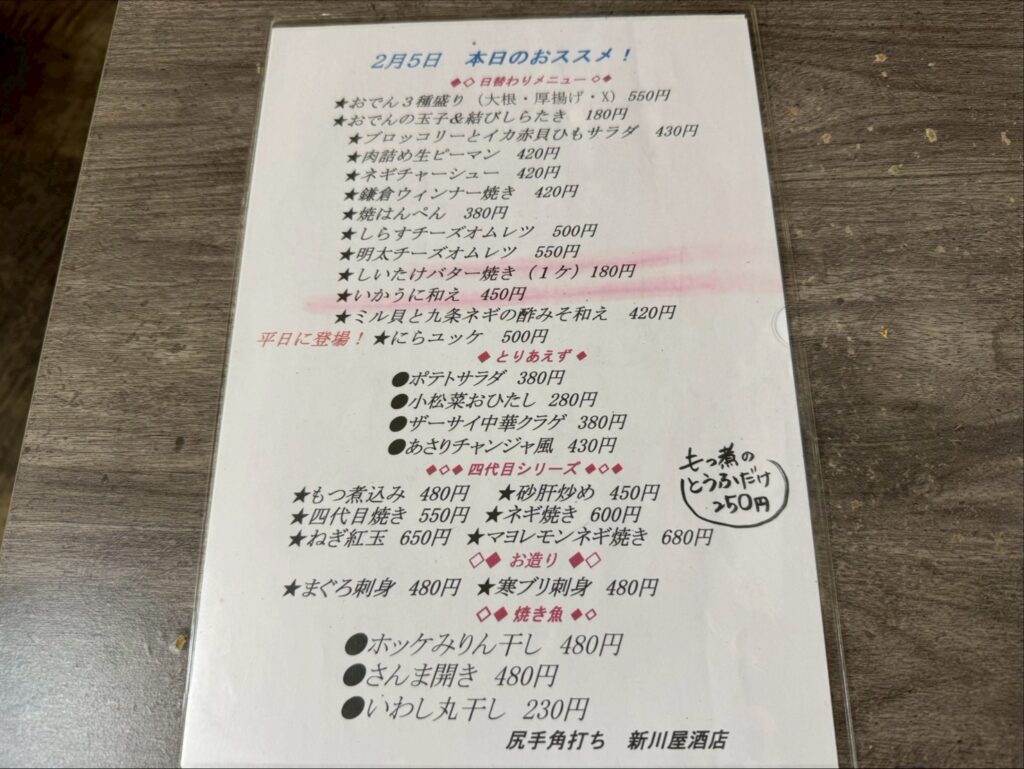 2月5日 本日のおススメ！
◆◇ 日替わりメニュー ◇◆
★おでん３種盛り（大根・厚揚げ・X）550円
★おでんの玉子＆結びしらたき 180円
★ブロッコリーとイカ赤貝ひもサラダ 430円
★肉詰め生ピーマン 420円
★ネギチャーシュー 420円
★鎌倉ウィンナー焼き 420円
★焼はんぺん 380円
★しらすチーズオムレツ 500円
★明太チーズオムレツ 550円
★しいたけバター焼き（１ケ）180円
★いかうに和え 450円
★ミル貝と九条ネギの酢みそ和え 420円
平日に登場！ ★にらユッケ 500円
◆ とりあえず ◆
●ポテトサラダ 380円
●小松菜おひたし 280円
●ザーサイ中華クラゲ 380円
●あさりチャンジャ風 430円
◆◇◆ 四代目シリーズ ◆◇◆
★もつ煮込み 480円 ★砂肝炒め 450円
★四代目焼き 550円 ★ネギ焼き 600円
★ねぎ紅玉 650円 ★マヨレモンネギ焼き 680円
もつ煮の
とうふだけ
250円
◇◆ お造り ◆◇
★まぐろ刺身 480円 ★寒ブリ刺身 480円
◇◆ 焼き魚 ◆◇
●ホッケみりん干し 480円
●さんま開き 480円
●いわし丸干し 230円
尻手角打ち 新川屋酒店